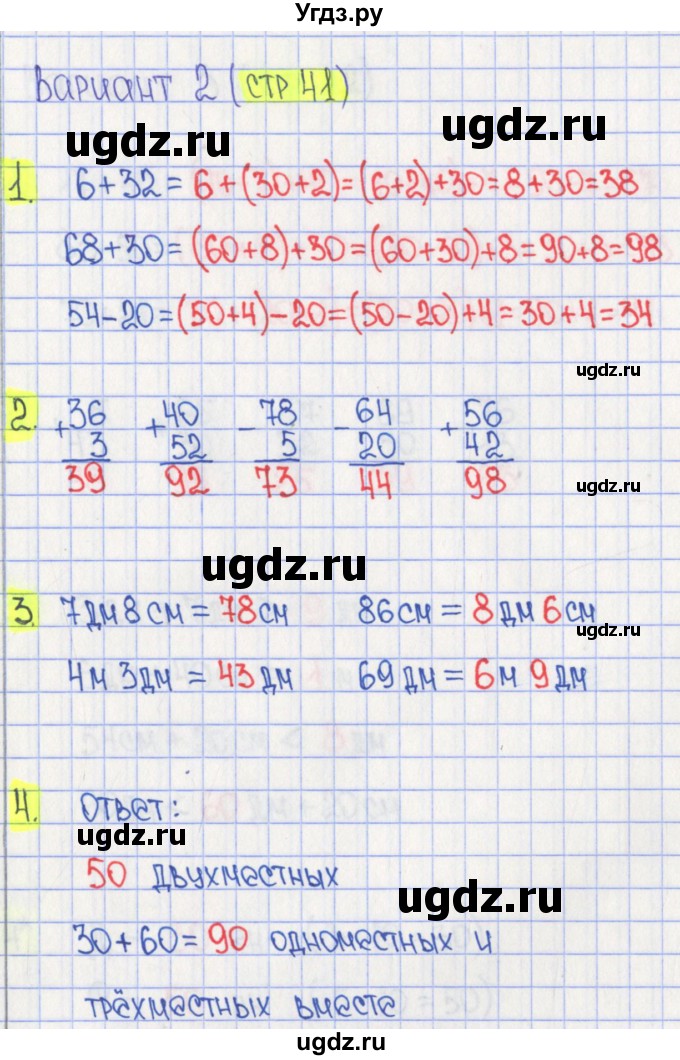 Угдз.ру
Вариант 2 (стр 41)
ugdz.ru ugdz.ru
1. 6+32=6+(30+2)=(6+2)+30=8+30=38
68+30=(60+8)+30=(60+30)+8=90+8=98
54-20=(50+4)-20=(50-20)+4=30+4=34
ugdz.ru
2. +36 +40 -78 -64 +56
3 52 5 20 42
39 92 73 44 98
ugdz.ru
ugdz.ru
3. 7дм 8см = 78см 86см = 8дм 6см
ugdz.ru
4м 3дм = 43дм 69дм = 6м 9дм
4. Ответ:
ugdz.ru
50 двухместных
ugdz.ru
30+60=90 одноместных и
трёхместных вместе
Угдз.ру